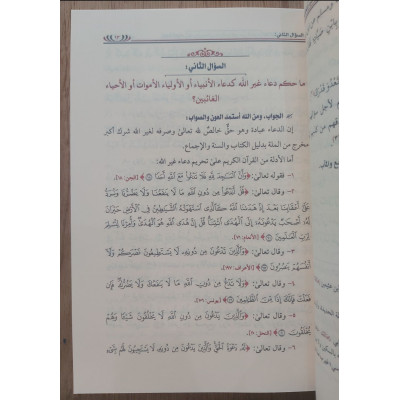 السؤال الثاني:
السؤال الثاني:
ما حكم دعاء غير الله كدعاء الأنبياء أو الأولياء الأموات أو الأحياء
الغائبين؟
الجواب، ومن الله أستمد العون والصواب:
إن الدعاء عبادة وهو حق خالص لله تعالى وصرفه لغير الله شرك أكبر
مخرج من الملة بدليل الكتاب والسنة والإجماع.
أما الأدلة من القرآن الكريم على تحريم دعاء غير الله:
١- فقوله تعالى: ﴿وَأَنَّ الْمَسَاجِدَ لِلَّهِ فَلَا تَدْعُوا مَعَ اللَّهِ أَحَدًا﴾ [الجن: ١٨].
٢- وقال تعالى: ﴿قُلْ أَنَدْعُوا مِن دُونِ اللَّهِ مَا لَا يَنفَعُنَا وَلَا يَضُرُّنَا وَنُرَدُّ
عَلَىٰ أَعْقَابِنَا بَعْدَ إِذْ هَدَانَا اللَّهُ كَالَّذِي اسْتَهْوَتْهُ الشَّيَاطِينُ فِي الْأَرْضِ حَيْرَانَ
لَهُ أَصْحَابٌ يَدْعُونَهُ إِلَى الْهُدَى ائْتِنَا قُلْ إِنَّ هُدَى اللَّهِ هُوَ الْهُدَىٰ وَأُمِرْنَا لِنُسْلِمَ
لِرَبِّ الْعَالَمِينَ﴾ [الأنعام: ٧١].
٣- وقال تعالى: ﴿وَالَّذِينَ تَدْعُونَ مِن دُونِهِ لَا يَسْتَطِيعُونَ نَصْرَكُمْ وَلَا
أَنفُسَهُمْ يَنصُرُونَ﴾ [الأعراف: ١٩٧].
٤- وقال تعالى: ﴿وَلَا تَدْعُ مِن دُونِ اللَّهِ مَا لَا يَنفَعُكَ وَلَا يَضُرُّكَ فَإِن
فَعَلْتَ فَإِنَّكَ إِذًا مِّنَ الظَّالِمِينَ﴾ [يونس: ١٠٦].
٥- وقال تعالى: ﴿وَالَّذِينَ يَدْعُونَ مِن دُونِ اللَّهِ لَا يَخْلُقُونَ شَيْئًا وَهُمْ
يُخْلَقُونَ﴾ [النحل: ٢٠].
٦- وقال تعالى: ﴿لَهُ دَعْوَةُ الْحَقِّ وَالَّذِينَ يَدْعُونَ مِن دُونِهِ لَا يَسْتَجِيبُونَ لَهُم بِشَيْءٍ